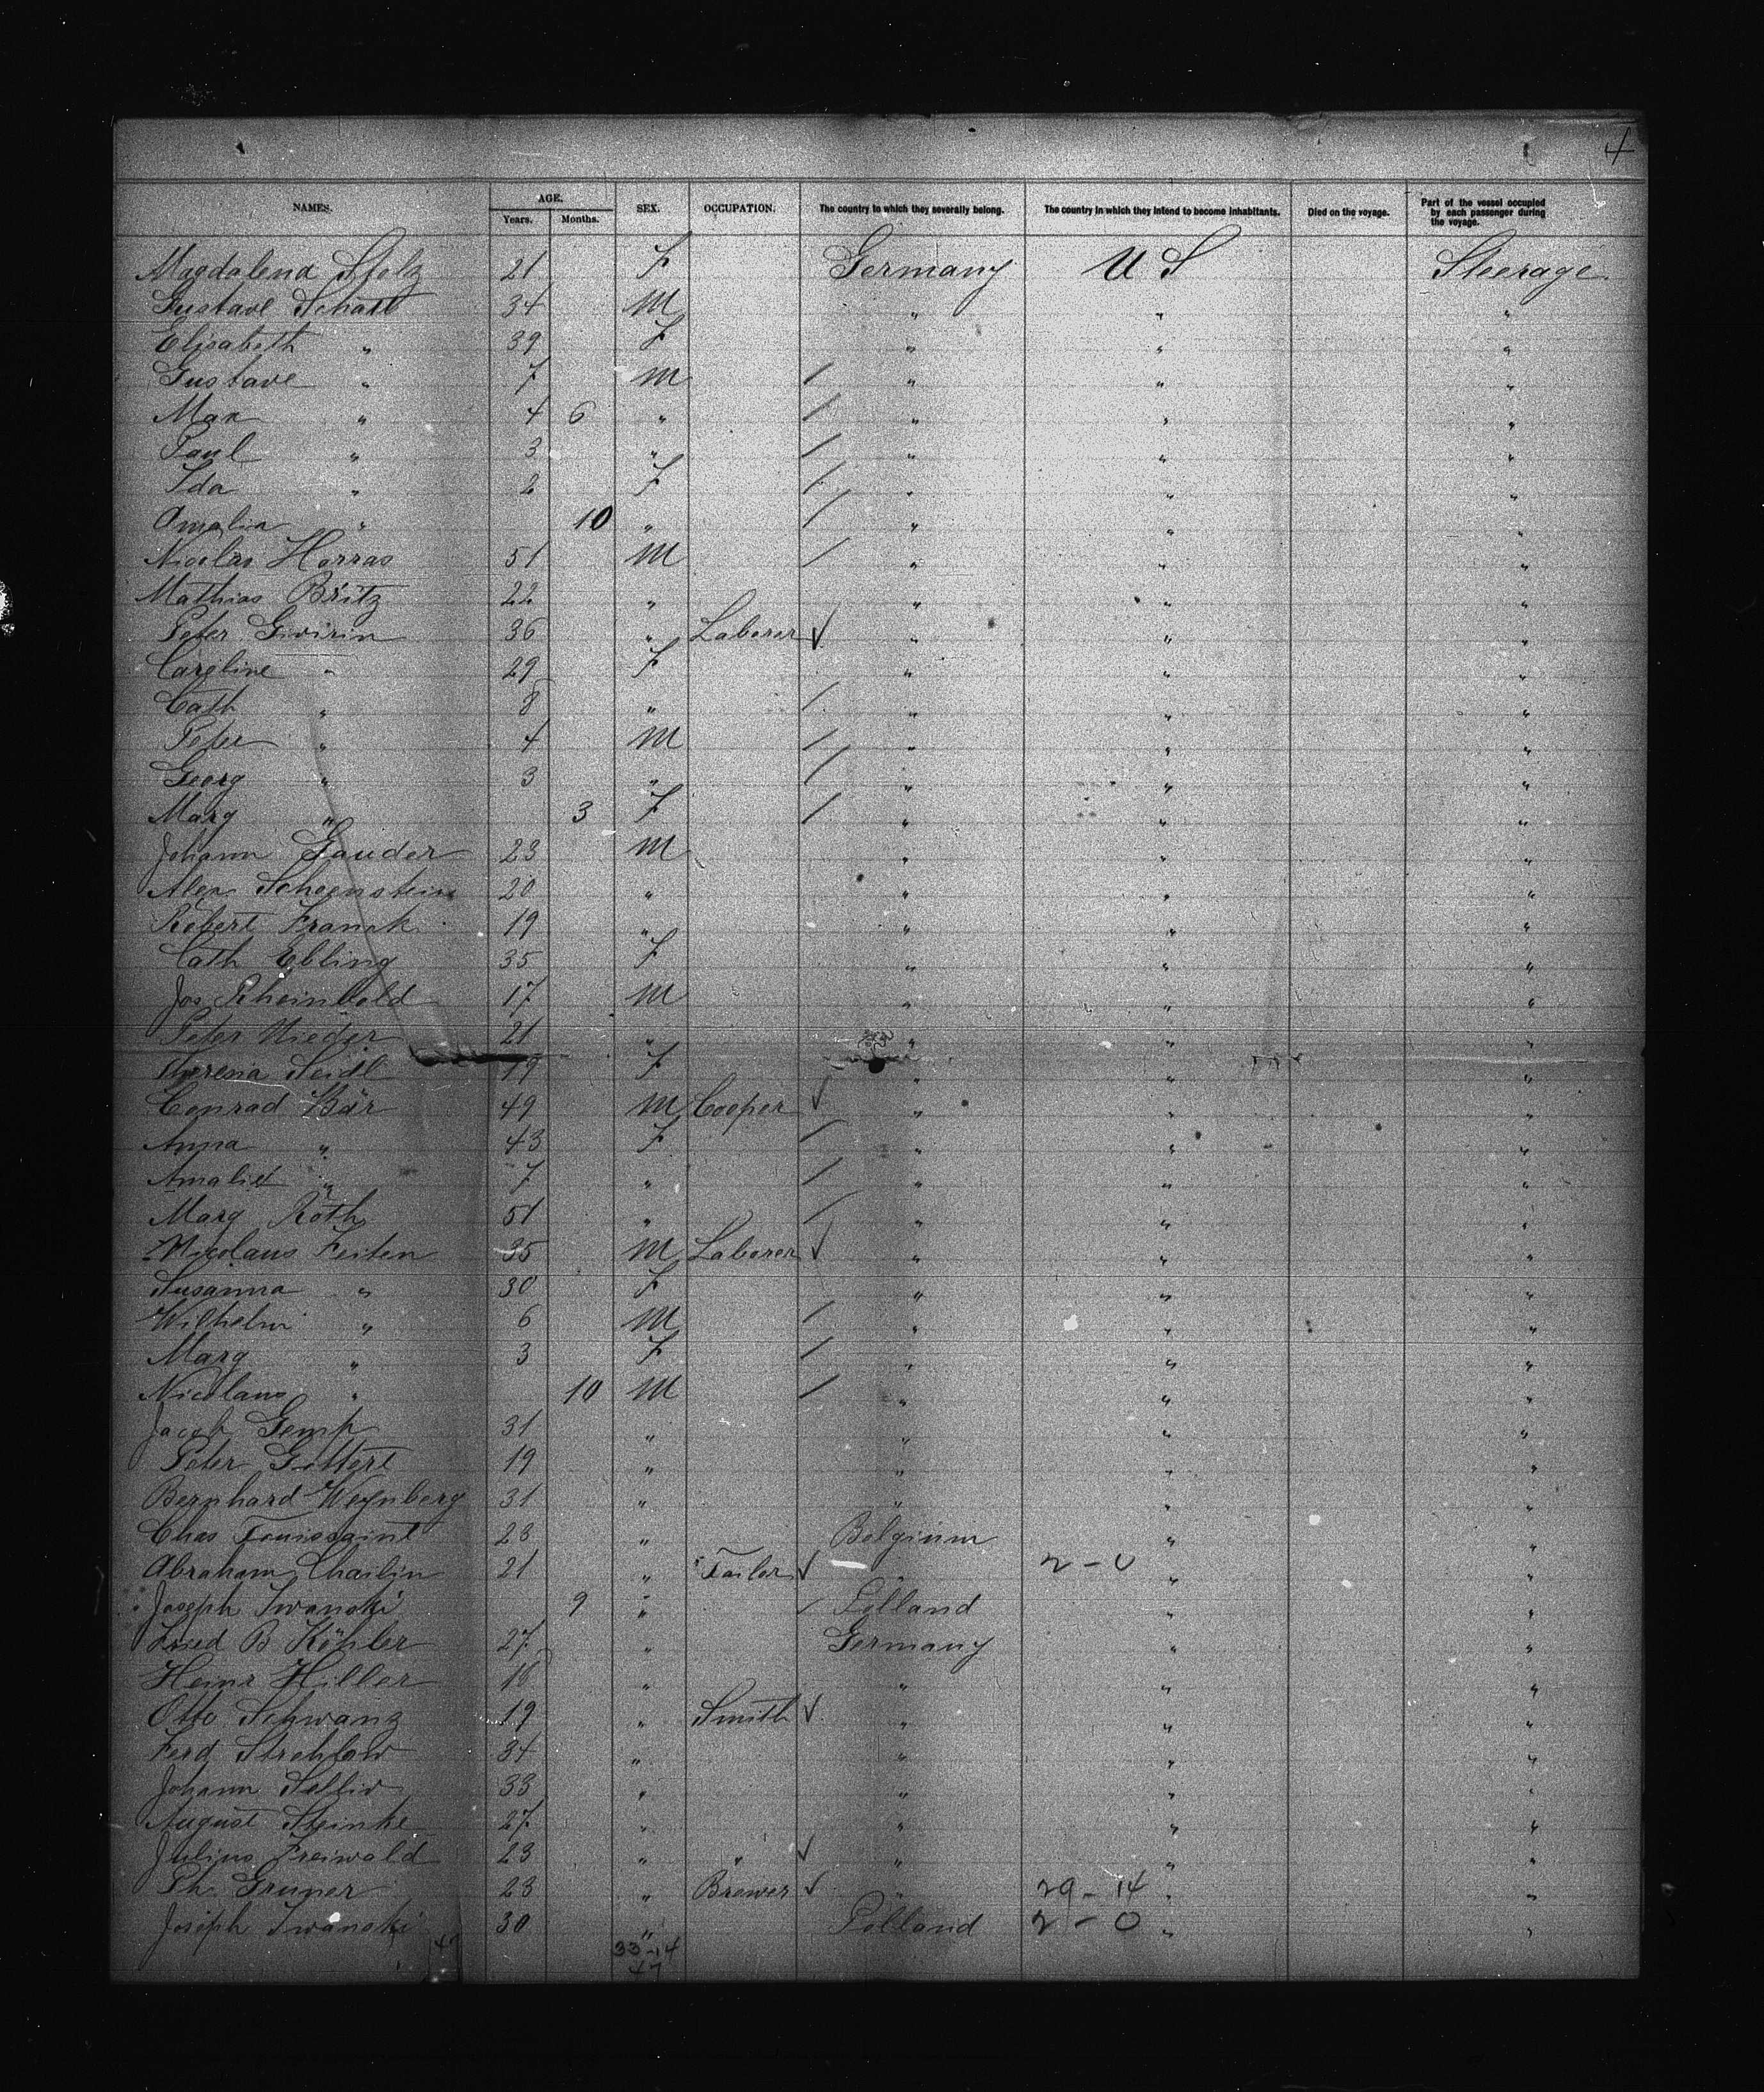 4
NAMES. AGE. Years. Months. SEX. OCCUPATION. The country to which they severally belong. The country in which they intend to become inhabitants. Died on the voyage. Part of the vessel occupied by each passenger during the voyage.
Magdalena Stolz 21 F Germany U S Steerage
Gustave Schatt 34 M " " "
Elisabeth " 39 F " " "
Gustave " 7 M / " " "
Max " 4 6 " / " " "
Paul " 3 " / " " "
Ida " 2 F / " " "
Amalia " 10 " / " " "
Nicolas Harras 51 M / " " "
Mathias Britz 22 " " " "
Peter 36 " Laborer ✓ " " "
Caroline " 29 F " " "
Cath " 8 " / " " "
Peter " 4 M / " " "
Georg " 3 " / " " "
Marg " 3 F / " " "
Johann Gauder 23 M " " "
Alex Schoenstein 20 " " " "
Robert Franck 19 " " " "
Cath Ebling 35 F " " "
Jos Rheinbold 17 M " " "
Peter Nieder 21 " " " "
Theresa Seidl 19 F " " "
Conrad Bär 49 M Cooper ✓ " " "
Anna " 43 F / " " "
Amalie " 7 " / " " "
Marg Roth 51 " / " " "
Nicolaus Feiten 35 M Laborer ✓ " " "
Susanna " 30 F " " "
Wilhelm " 6 M / " " "
Marg " 3 F / " " "
Nicolaus " 10 M / " " "
Jacob Gemp 31 " " " "
Peter Gottert 19 " " " "
Bernhard Weynberg 31 " " " "
Chas Toussaint 23 " Belgium " "
Abraham Chailin 21 " Tailor ✓ " 2 - 0 " "
Joseph Iwanski 9 " / Polland " "
B Köhler 27 " Germany " "
Heinr Hiller 18 " " " "
Otto Schwanz 19 " Smith ✓ " " "
Ferd Strehlow 34 " " " "
Johann 33 " " " "
August Steinke 27 " " " "
Julius Freiwald 23 " " ✓ " " "
Ph. Gruner 23 " Brewer ✓ " 29 - 14 " "
Joseph Iwanski 30 " Polland 2 - 0 " "
33-14
47